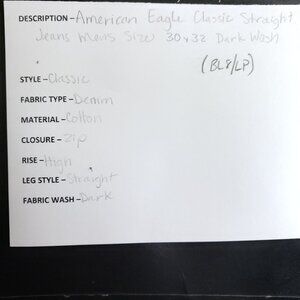 DESCRIPTION - American Eagle Classic Straight
Jeans Mens Size 30x32 Dark Wash
(BL8/LP)
STYLE - Classic
FABRIC TYPE - Denim
MATERIAL - Cotton
CLOSURE - Zip
RISE - High
LEG STYLE - Straight
FABRIC WASH - Dark